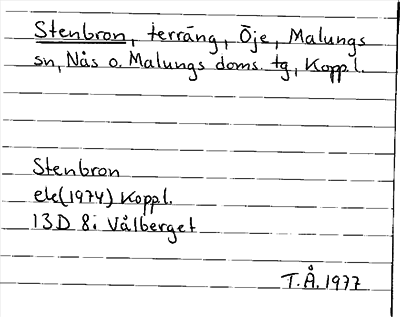 Stenbron, terräng, Öje, Malungs
sn, Nås o. Malungs doms. tg, Koppl.
Stenbron
ek(1974) Koppl.
13D 8i Vålberget
T.Å. 1977